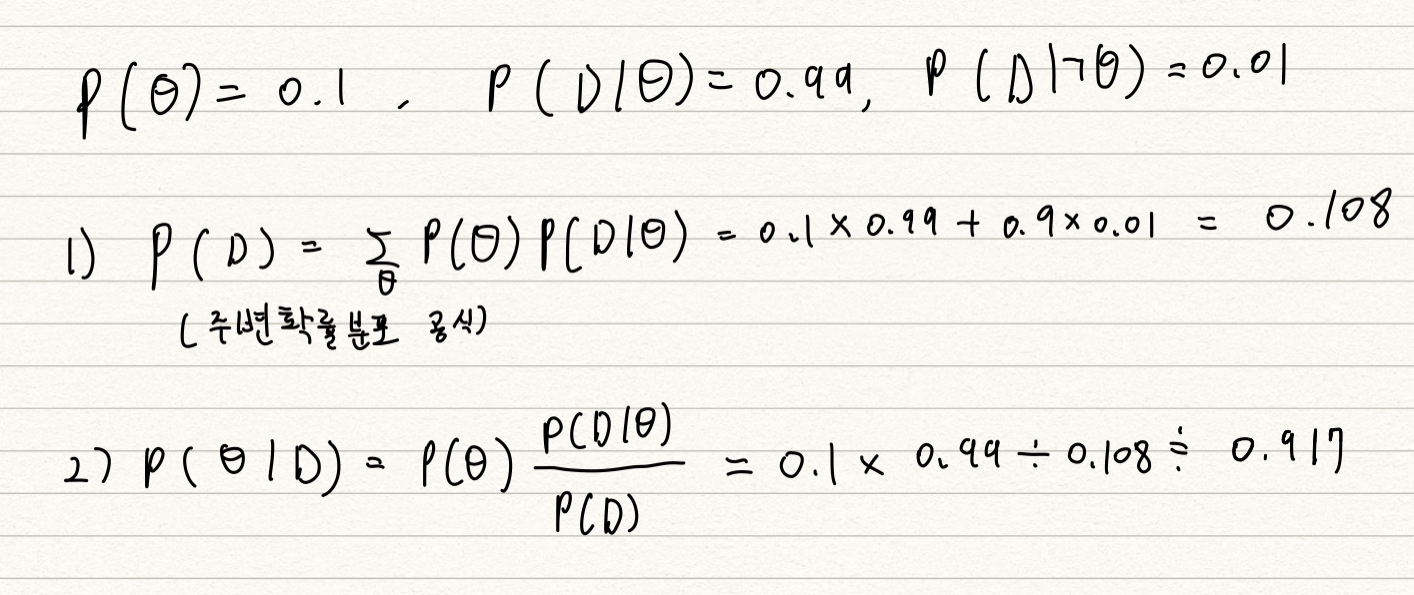 P(θ) = 0.1 , P(D|θ) = 0.99, P(D|¬θ) = 0.01
1) P(D) = Σ_θ P(θ)P(D|θ) = 0.1 × 0.99 + 0.9 × 0.01 = 0.108
(주변확률분포 공식)
2) P(θ|D) = P(θ) P(D|θ)/P(D) = 0.1 × 0.99 ÷ 0.108 ≒ 0.917